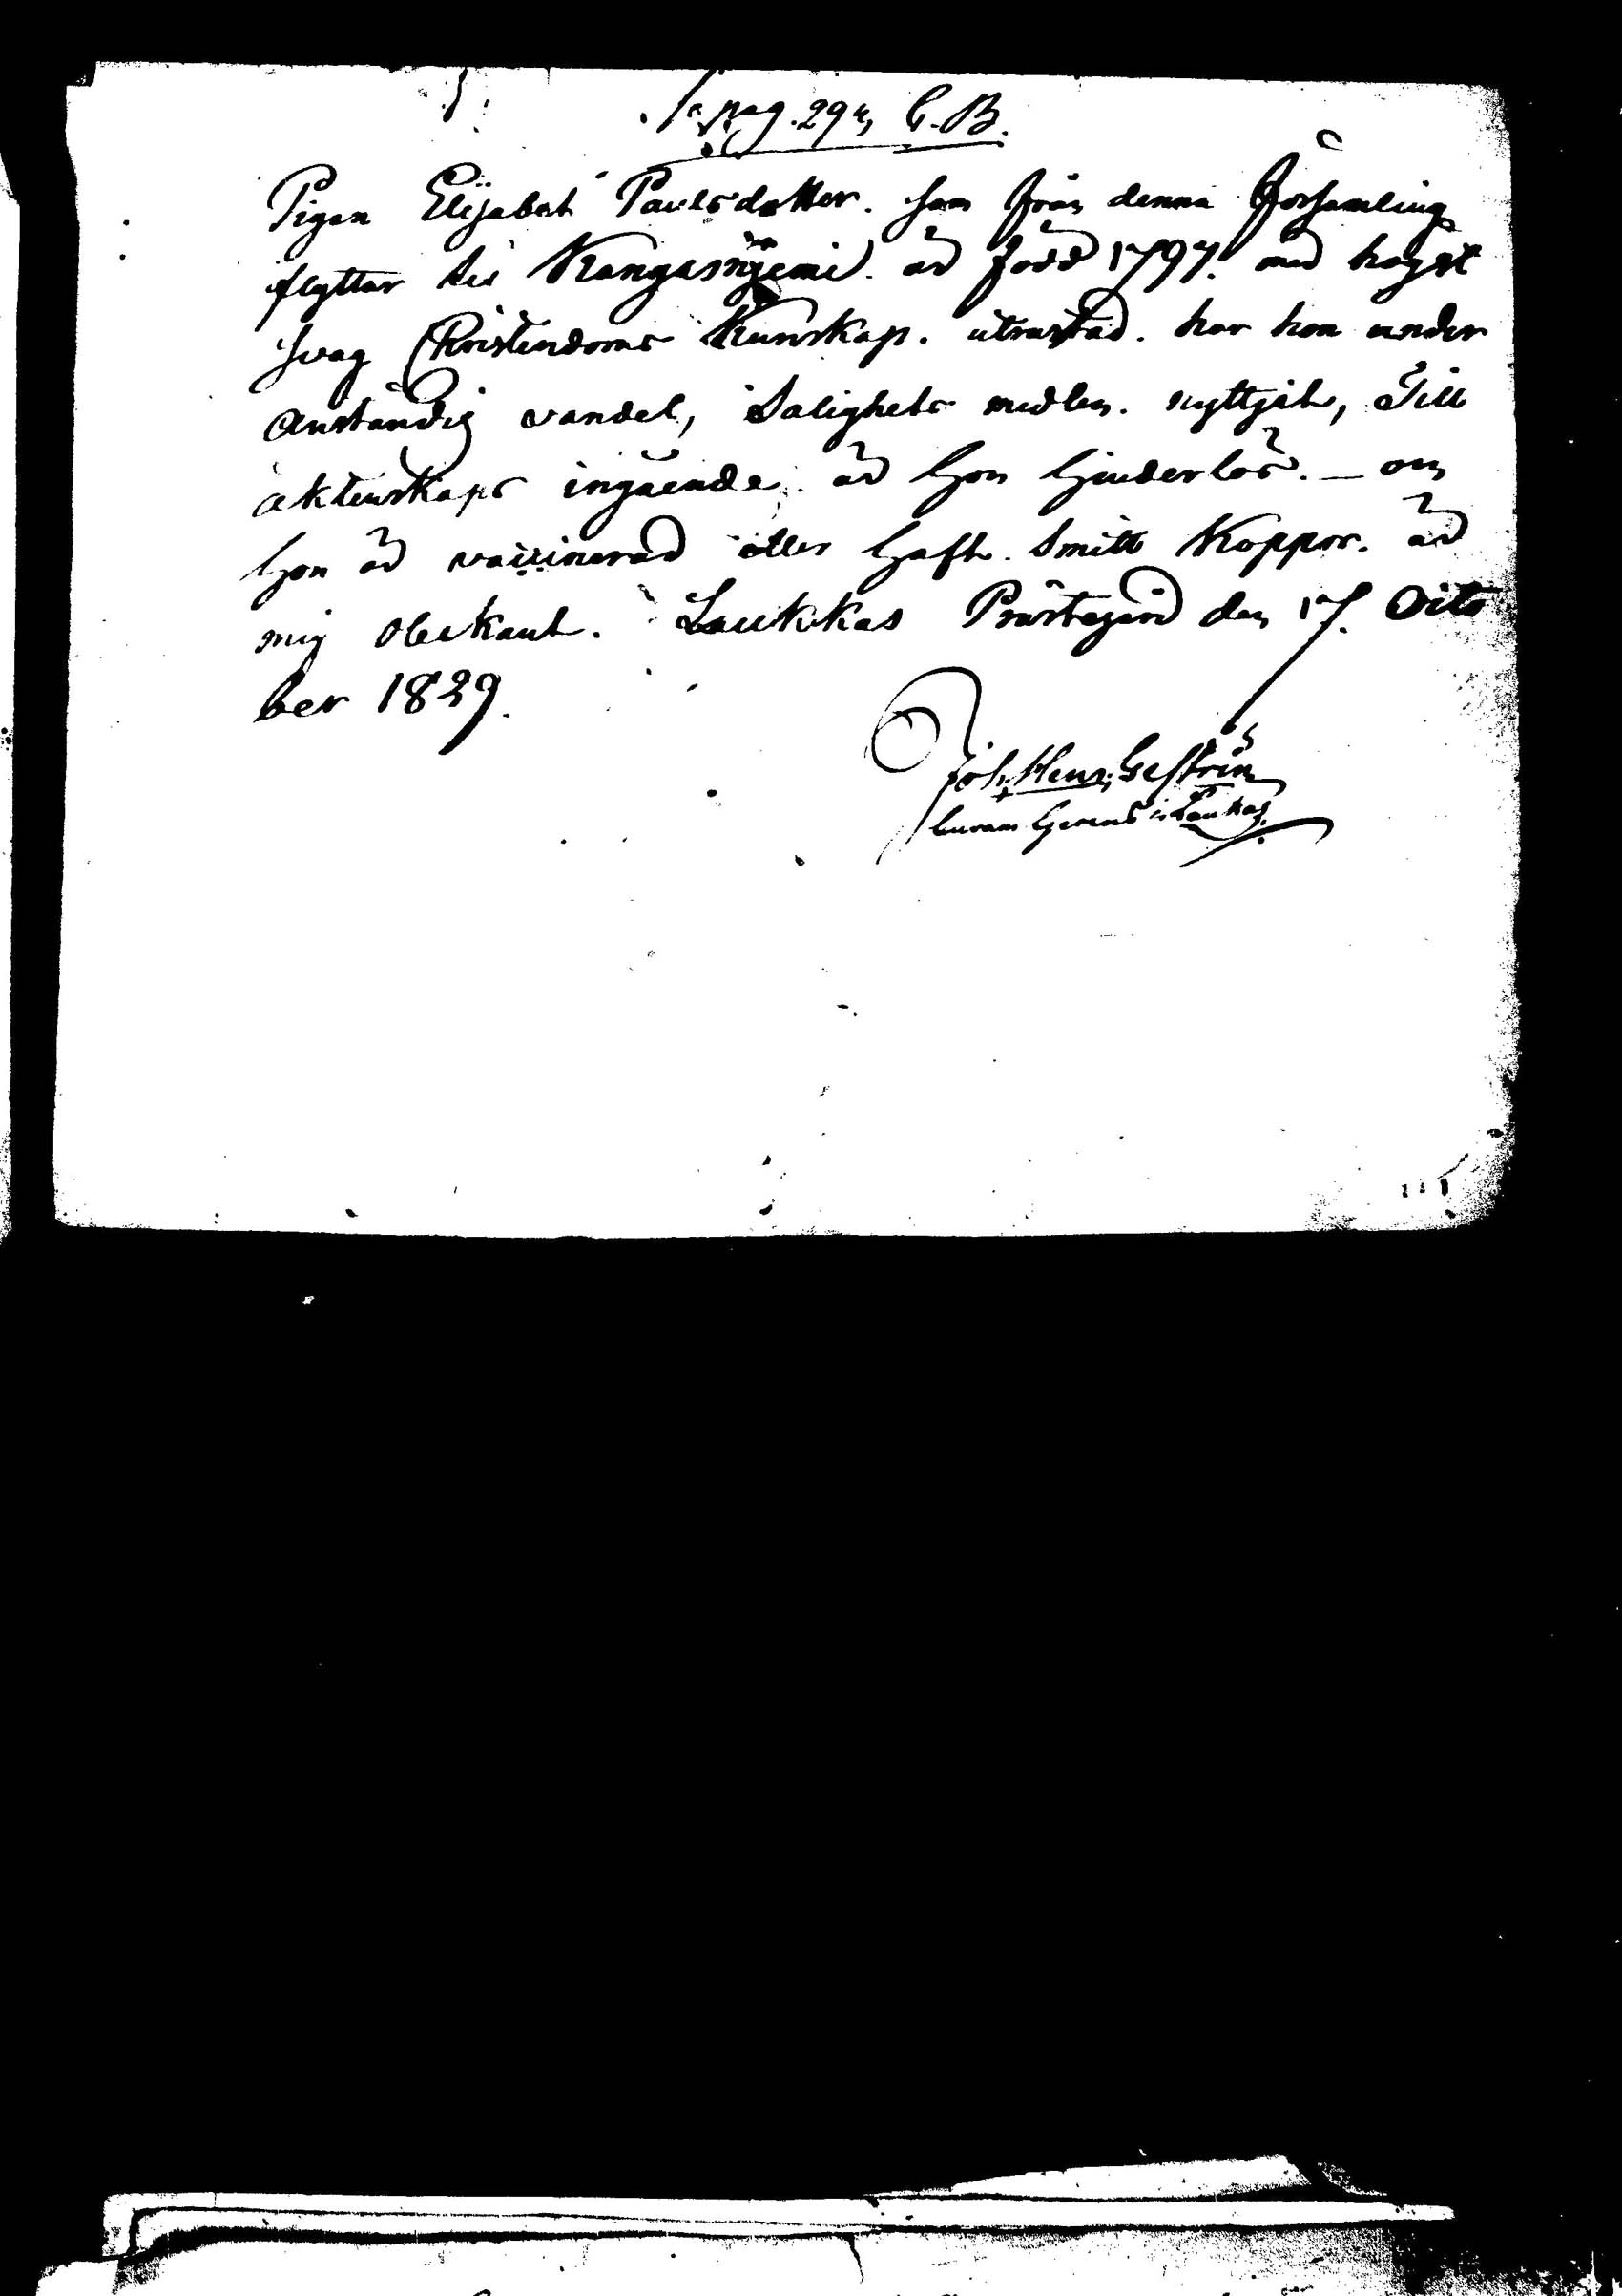 pag. 29 C. B.
Pigan Elisabet Paulsdotter. som från denna Församling
flyttar till Kangasnjemi. är född 1797. med högst
svag Christendoms Kunskap. utrustad. har hon under
anständig vandel, Salighets medlen. nyttjat, Till
äktenskaps ingående är hon hinderlös. — om
hon är vaccinerad eller haft Smitt Koppor. är
mig obekant. Laukkas Prästegård den 17. Octo
ber 1829.
Joh. Henr. Gestrin
Curam Gerens i Laukas.